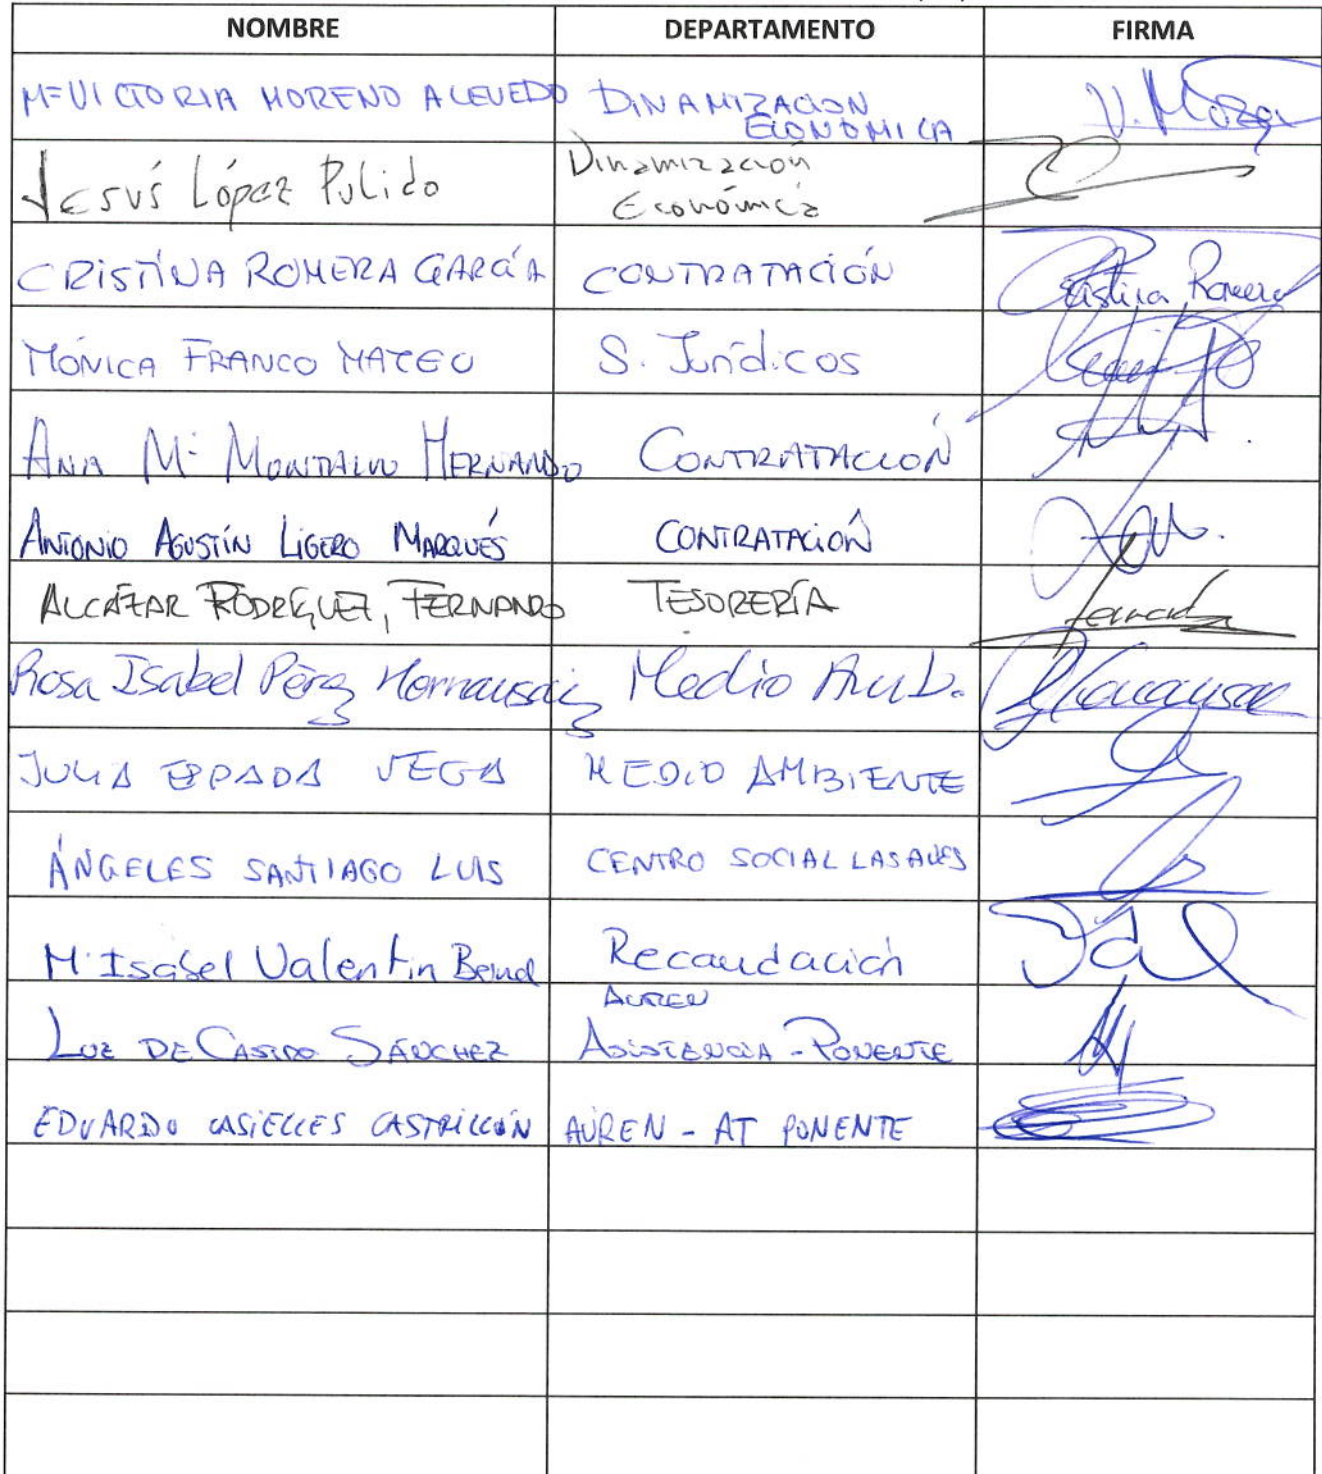 NOMBRE DEPARTAMENTO FIRMA
Mª VICTORIA MORENO ACEVEDO DINAMIZACION
ECONOMICA
Jesús López Pulido Dinamización
Económica
CRISTINA ROMERA GARCÍA CONTRATACIÓN Cristina Romera
MÓNICA FRANCO MATEO S. Jurídicos
ANA Mª MONTALVO HERNANDO CONTRATACIÓN
ANTONIO AGUSTÍN LIGERO MARQUÉS CONTRATACIÓN
ALCÁZAR RODRÍGUEZ, FERNANDO TESORERÍA Fernando
Rosa Isabel Pérez Medio Amb.
JULIA ESPADA VEGA MEDIO AMBIENTE
ÁNGELES SANTIAGO LUIS CENTRO SOCIAL LAS AVES
Mª Isabel Valentin Recaudación
AUREN
LUZ DE CASTRO SÁNCHEZ ASISTENCIA - PONENTE
EDUARDO CASIELLES CASTRILLÓN AUREN - AT PONENTE